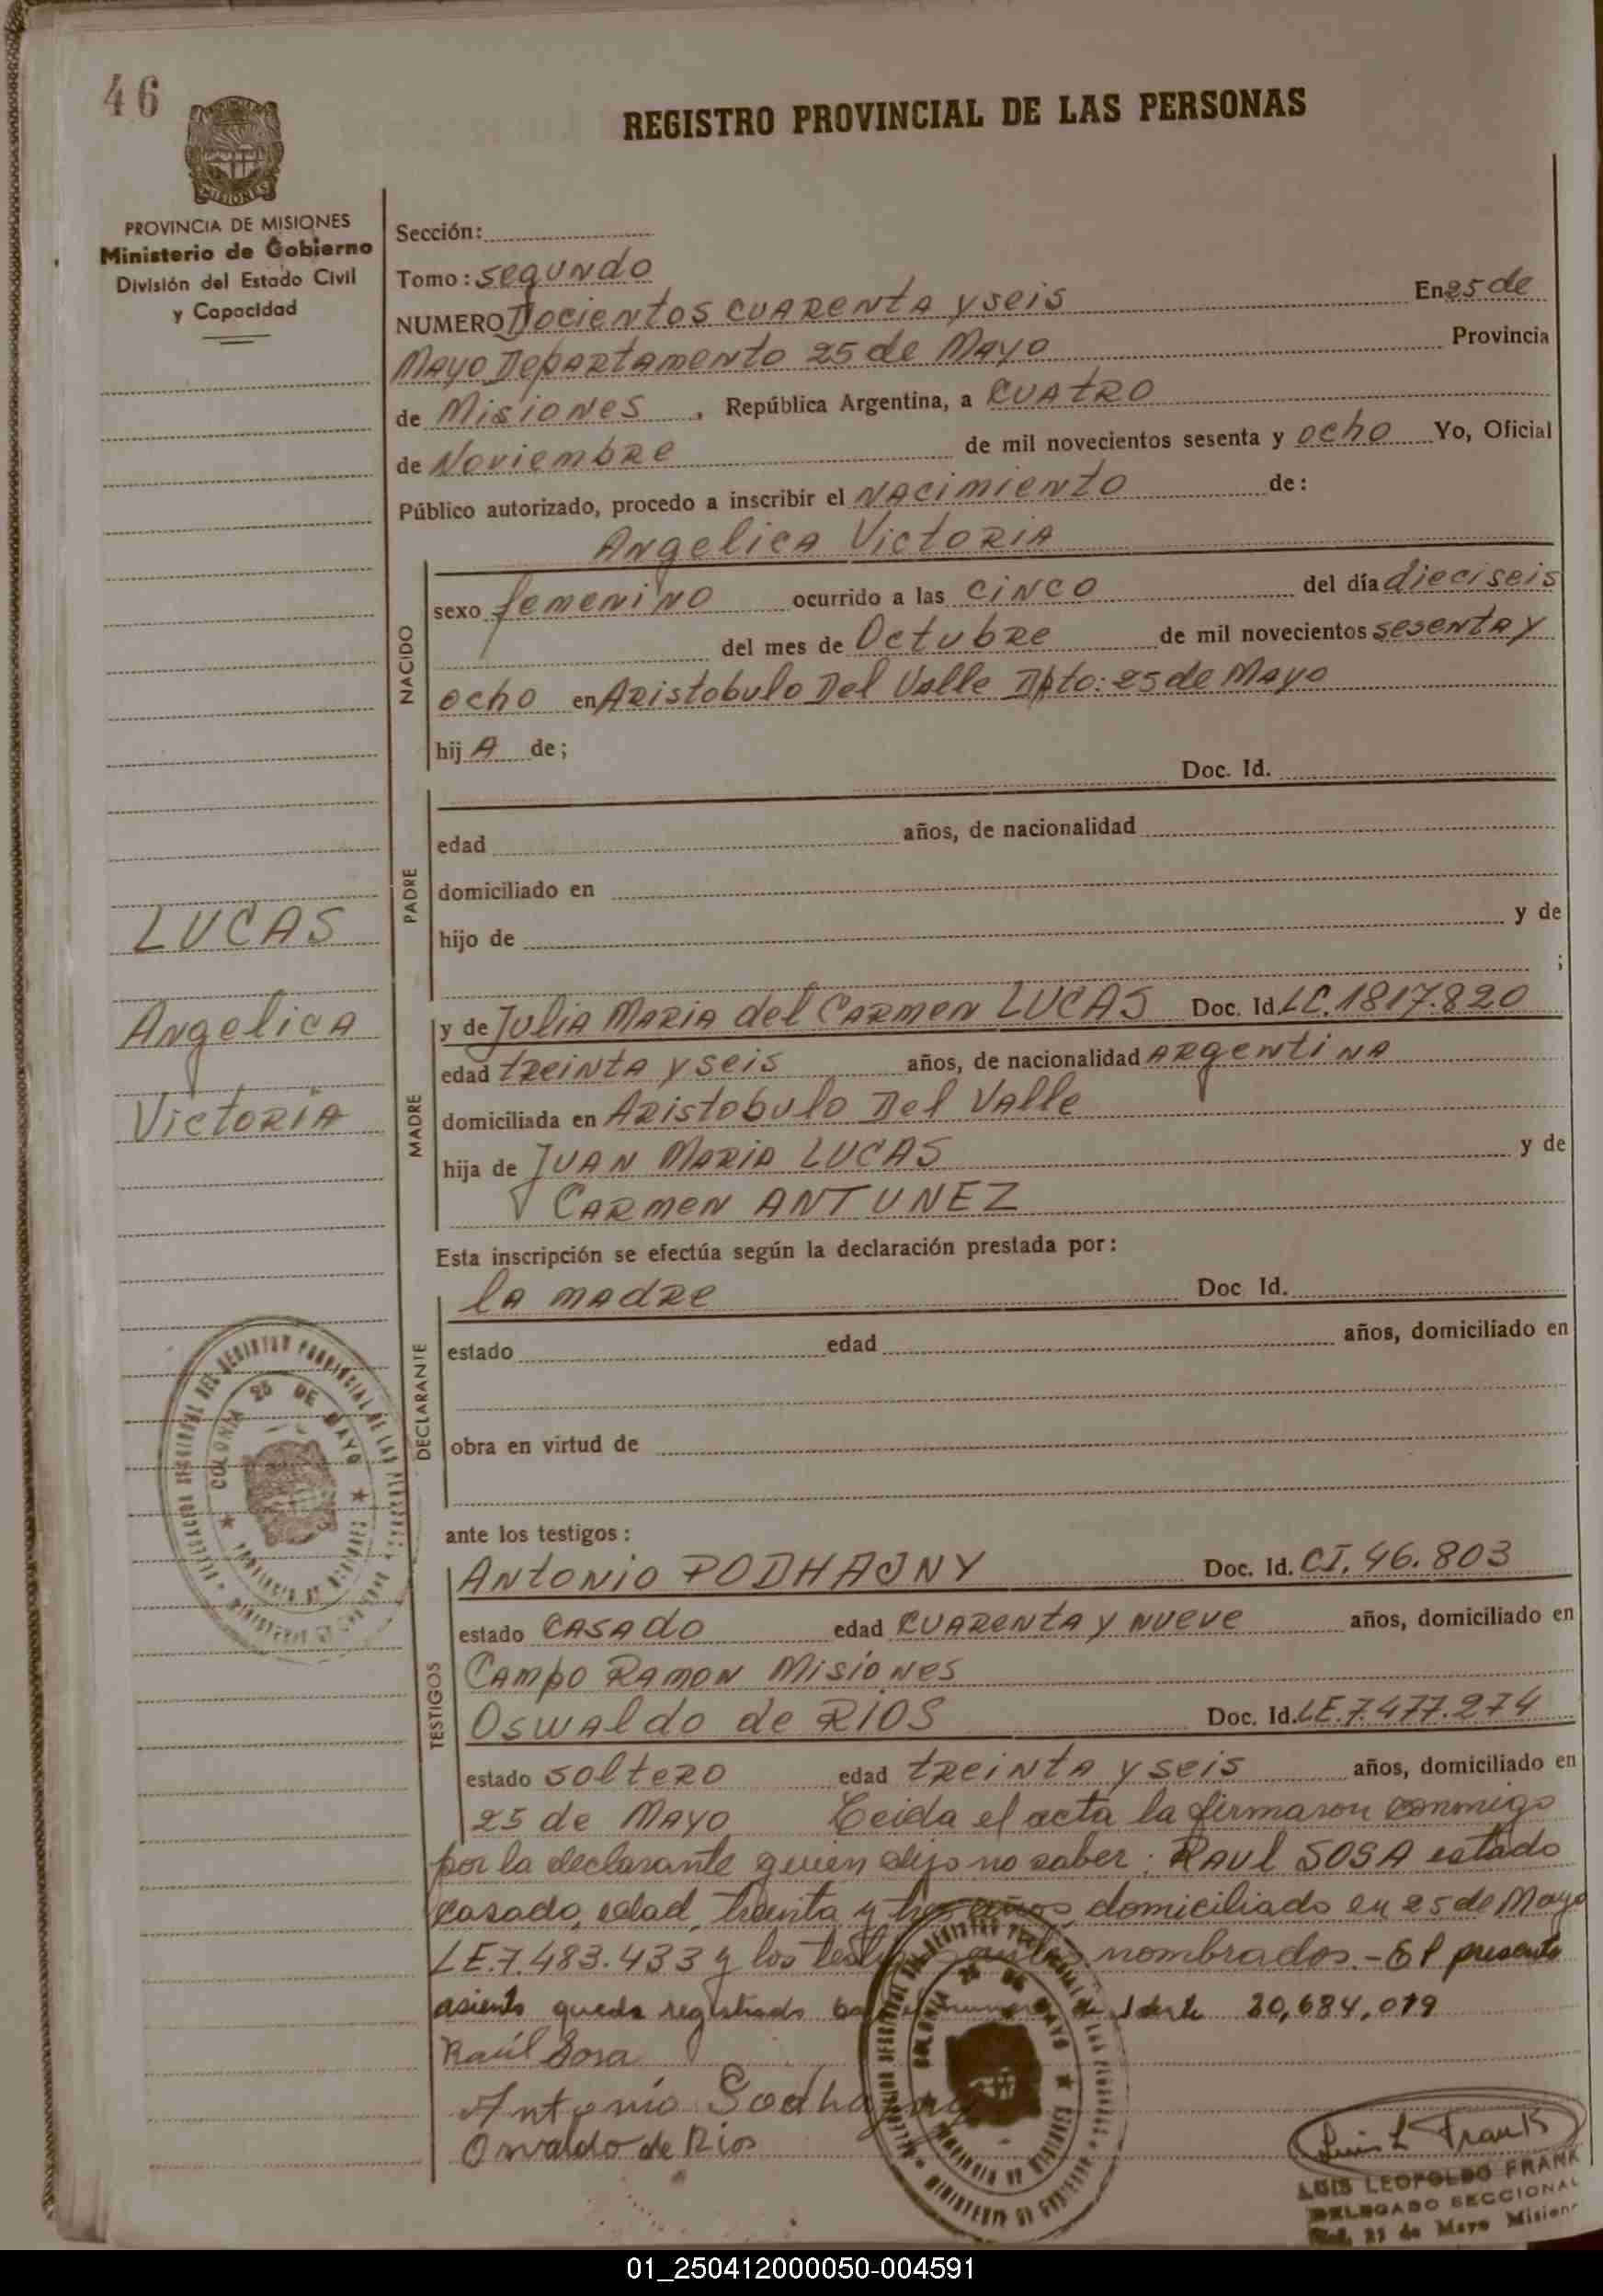 46
REGISTRO PROVINCIAL DE LAS PERSONAS
MISIONES
PROVINCIA DE MISIONES
Ministerio de Gobierno
División del Estado Civil
y Capacidad
Sección:
Tomo: segundo
NUMERO Docientos cuarenta y seis En 25 de
Mayo Departamento 25 de Mayo Provincia
de Misiones, República Argentina, a cuatro
de Noviembre de mil novecientos sesenta y ocho Yo, Oficial
Público autorizado, procedo a inscribir el nacimiento de:
Angelica Victoria
NACIDO
sexo femenino ocurrido a las cinco del día dieciseis
del mes de Octubre de mil novecientos sesenta y
ocho en Aristobulo Del Valle Dpto: 25 de Mayo
hij A de;
Doc. Id.
PADRE
edad años, de nacionalidad
domiciliado en
hijo de y de
;
LUCAS
Angelica
Victoria
MADRE
y de Julia Maria del Carmen LUCAS Doc. Id. LC. 1817.820
edad treinta y seis años, de nacionalidad Argentina
domiciliada en Aristobulo Del Valle
hija de Juan Maria LUCAS y de
Carmen ANTUNEZ
Esta inscripción se efectúa según la declaración prestada por:
DECLARANTE
la madre Doc Id.
estado edad años, domiciliado en
obra en virtud de
COLONIA 25 DE MAYO
ante los testigos:
TESTIGOS
Antonio PODHAJNY Doc. Id. CI. 46.803
estado casado edad cuarenta y nueve años, domiciliado en
Campo Ramon Misiones
Oswaldo de RIOS Doc. Id. LE. 7.477.274
estado soltero edad treinta y seis años, domiciliado en
25 de Mayo Leida el acta la firmaron conmigo
por la declarante quien dijo no saber: Raul SOSA estado
casado, edad, treinta y tres años domiciliado en 25 de Mayo
LE. 7.483.433 y los testigos antes nombrados.- El presente
asiento queda registrado bajo el numero de Ident 20,684,019
Raúl Sosa
Antonio Podhajny
Osvaldo de Rios
Luis L Frank
LUIS LEOPOLDO FRANK
DELEGADO SECCIONAL
Col. 25 de Mayo Misiones
01_250412000050-004591